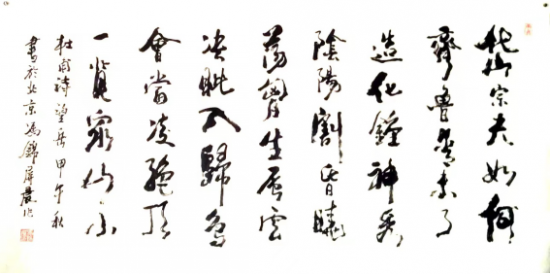 岱宗夫如何
齊魯青未了
造化鍾神秀
陰陽割昏曉
蕩胷生层云
決眦入歸鳥
會當凌絕頂
一覽眾山小
杜甫詩望岳甲午秋
書於北京馮錦屏